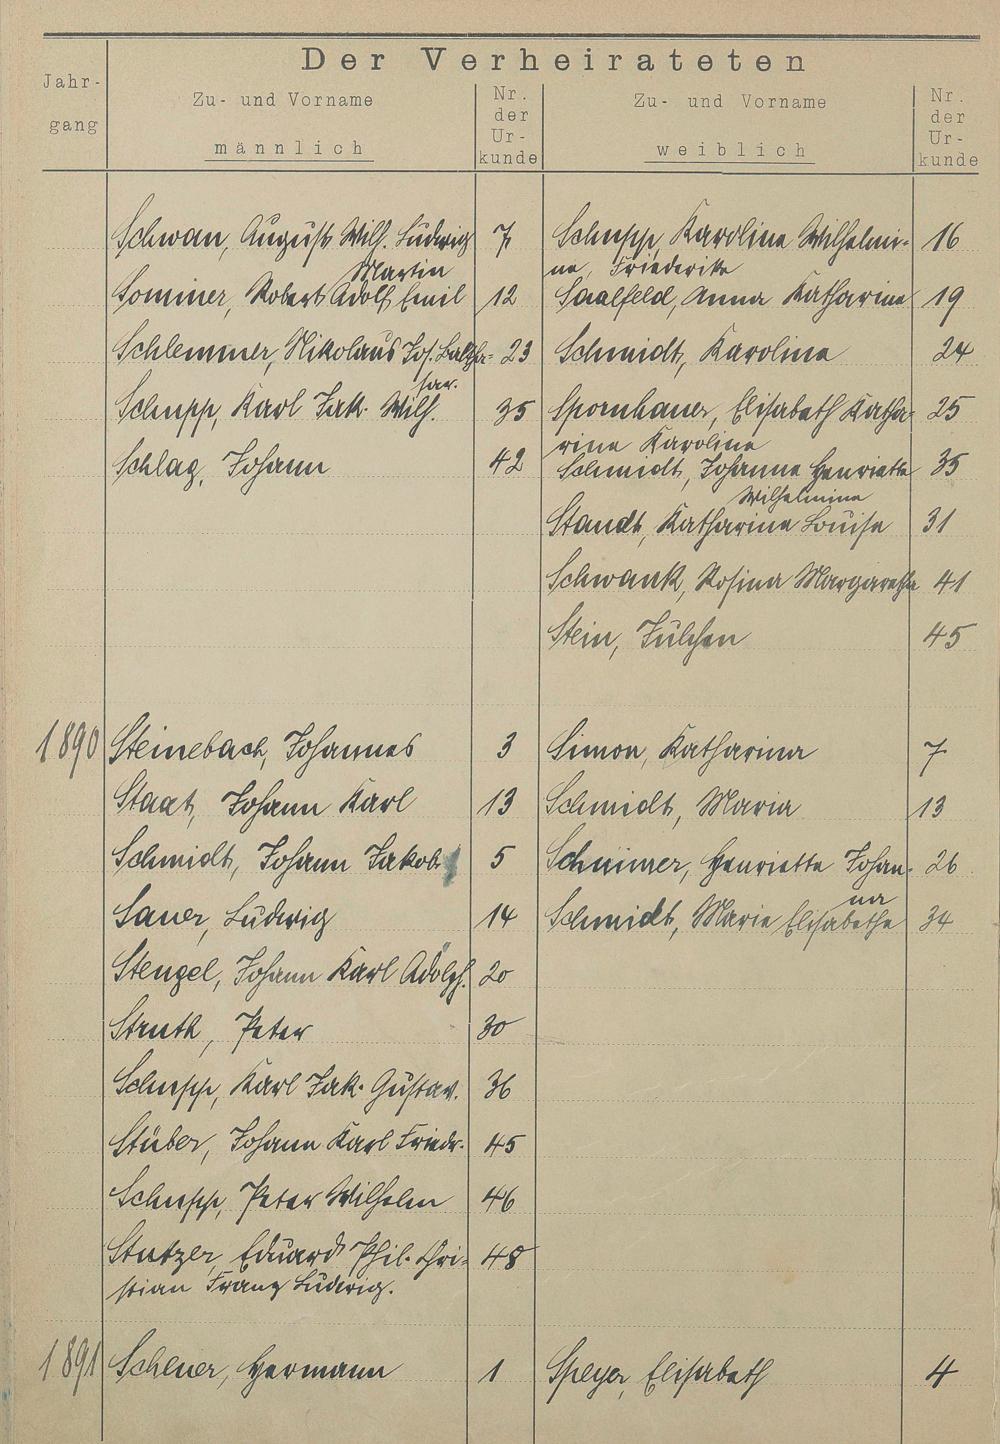 Der Verheirateten
Jahr-
gang
Zu- und Vorname
männlich
Nr.
der
Ur-
kunde
Zu- und Vorname
weiblich
Nr.
der
Ur-
kunde
Schwan, August Wilh. Ludwig 7 Schupp, Karoline Wilhelmi- 16
Martin ne, Friederike
Sommer, Robert Adolf Emil 12 Saalfeld, Anna Katharine 19
Schlemmer, Nikolaus Jos. Baltha- 23 Schmidt, Karoline 24
sar.
Schupp, Karl Jak. Wilh. 35 Spornhauer, Elisabeth Katha- 25
rine Karoline
Schlag, Johann 42 Schmidt, Johanne Henriette 35
Wilhelmine
Staudt, Katharine Louise 31
Schwank, Rosina Margaretha 41
Stein, Julchen 45
1890 Steinebach, Johannes 3 Simon, Katharina 7
Staat, Johann Karl 13 Schmidt, Maria 13
Schmidt, Johann Jakob 5 Henriette Johan- 26
na
Sauer, Ludwig 14 Schmidt, Marie Elisabethe 34
Stengel, Johann Karl Adolph. 20
Struth, Peter 30
Schupp, Karl Jak. Gustav. 36
Stüber, Johann Karl Friedr. 45
Schupp, Peter Wilhelm 46
Stutzer, Eduard Phil. Chri- 48
stian Franz Ludwig.
1891 Scheuer, Hermann 1 Speyer, Elisabeth 4